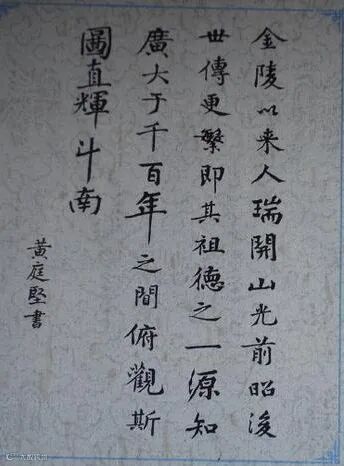 金陵以来人瑞開山光前昭後
世傳更繁即其祖德之一源知
廣大于千百年之間俯觀斯
圖直輝斗南
黃庭堅書